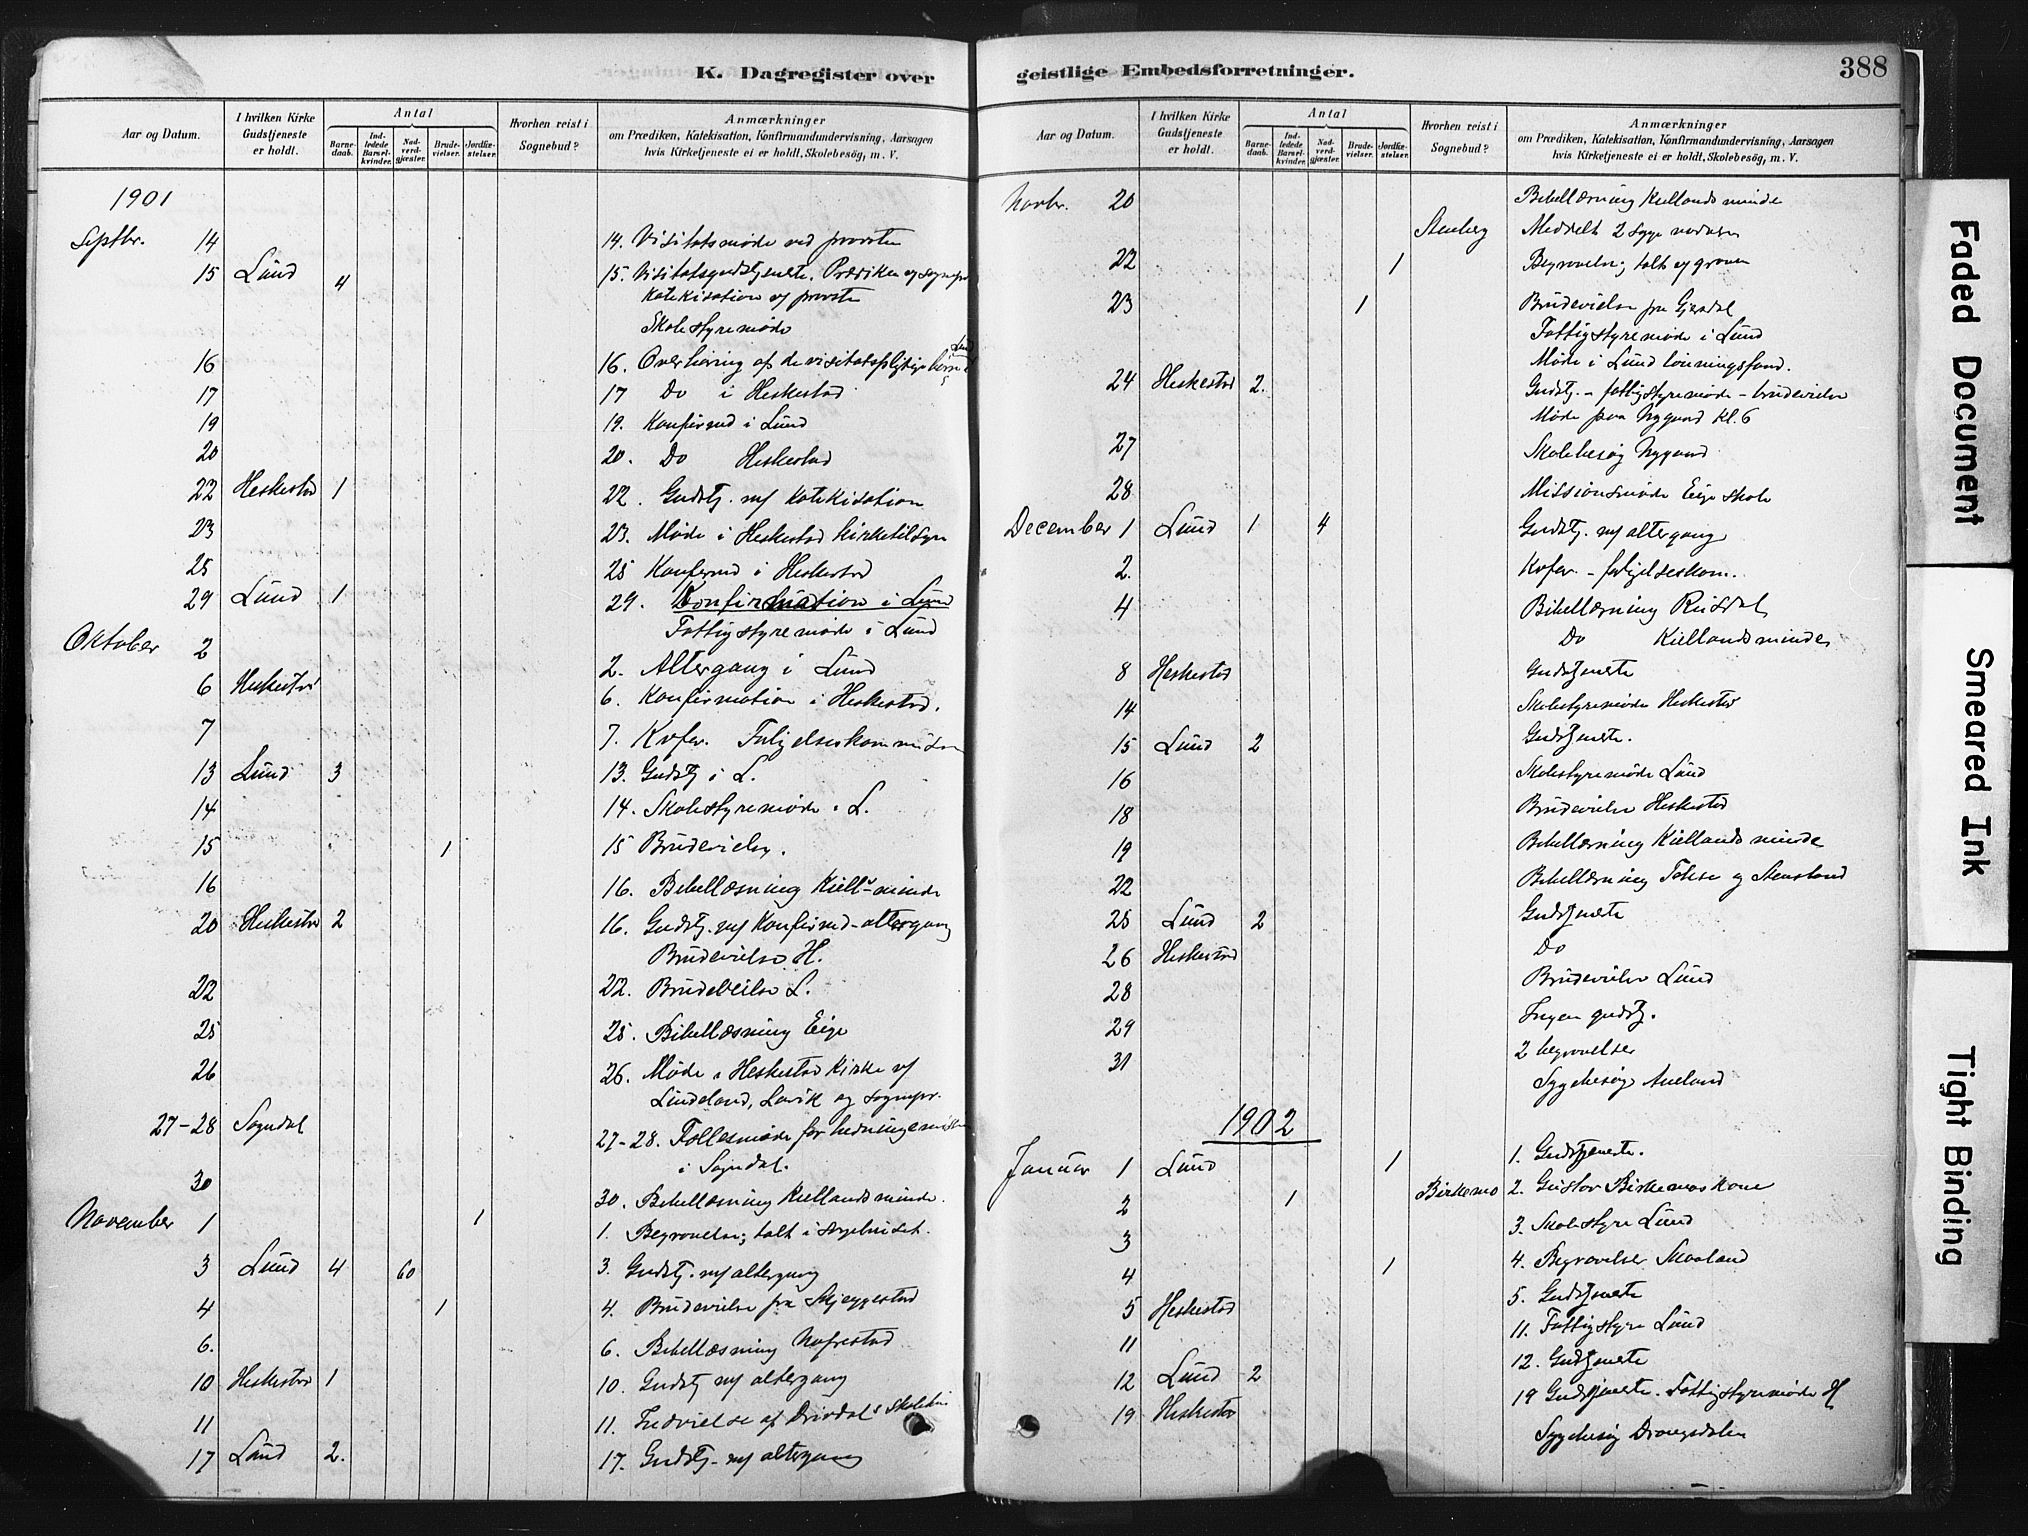 K. Dagregister over
Aar og Datum.
I hvilken Kirke Gudstjeneste er holdt.
Antal
Barnedaab.
Indledede Barselkvinder.
Nadverdgjæster.
Brudevielser.
Jordfæstelser.
Hvorhen reist i Sognebud?
Anmærkninger
om Prædiken, Katekisation, Konfirmandundervisning, Aarsagen
hvis Kirketjeneste ei er holdt, Skolebesög, m. V.
1901
Septbr. 14 14. Visitatsmøde ved provsten
15 Lund 4 15. Visitatsgudstjeneste. Prædiken af sognepr
Katekisation v/ provsten
Skolestyremøde
16 16. Overhøring af de visitatspligtige børn i Lund
17 17 Do i Heskestad
19 19. Konfirmd i Lund
20 20. Do Heskestad
22 Heskestad 1 22. Gudstj. m/ Katekisation
23 23. Møde i Heskestad kirketilsyn
25 25 Konfirmd i Heskestad
29 Lund 1 29. Konfirmation i Lund
Fattigstyremøde i Lund
Oktober 2 2. Altergang i Lund
6 Heskestad 6. Konfirmation i Heskestad.
7 7. Kvfer. Forligelseskommission
13 Lund 3 13. Gudstj i L.
14 14. Skolestyremøde i L.
15 1 15 Brudevielse.
16 16. Bibellæsning Kiells-minde
20 Heskestad 2 16. Gudstj. m/ Konfirmd-altergang
Brudevielse H.
22 22. Brudevielse L.
25 25. Bibellæsning Eige
26 26. Møde i Heskestad Kirke m/
Lindeland, Lavik og sognepr.
27-28 Sogndal 27-28. Fællesmøde for hedningemission
i Sogndal.
30 30. Bibellæsning Kiellands minde.
November 1 1 1. Begravelse; talt i sørgehuset.
3 Lund 4 60 3. Gudstj. m/ altergang
4 1 4. Brudevielse fra Skjeggestad
6. 6. Bibellæsning Nofrestad
10 Heskestad 1 10. Gudstj m/ altergang
11 11. Indvielse af Drivdals Skolehus
17 Lund 2. 17. Gudstj. m/ altergang
geistlige Embedsforretninger.
388
Aar og Datum.
I hvilken Kirke Gudstjeneste er holdt.
Antal
Barnedaab.
Indledede Barselkvinder.
Nadverdgjæster.
Brudevielser.
Jordfæstelser.
Hvorhen reist i Sognebud?
Anmærkninger
om Prædiken, Katekisation, Konfirmandundervisning, Aarsagen
hvis Kirketjeneste ei er holdt, Skolebesög, m. V.
Novbr. 20 Bibellæsning Kiellands minde
Stenberg Meddelt 2 syge nadveren
22 1 Begravelse; talt ved graven
23 1 Brudevielse fra Gjesdal
Fattigstyremøde i Lund
Møde i Lund lønningsfond.
24 Heskestad 2. Gudstj. - fattigstyremøde - brudevielse
Møde paa Nygaard Kl. 6
27 Skolebesøg Nygaard
28 Missionsmøde Eige skole
December 1 Lund 1 4 Gudstj. m/ altergang
2. Kvfer. - forligelseskom.
4 Bibellæsning Rusdal
Do Kiellandsminde
8 Heskestad Gudstjeneste
14 Skolestyremøde Heskestad
15 Lund 2 Gudstjeneste.
16 Skolestyremøde Lund
18 Brudevielse Heskestad
19 Bibellæsning Kiellands minde
22 Bibellæsning Tekse og Stensland
25 Lund 2 Gudstjeneste
26 Heskestad Do
28 Brudevielse Lund
29 Ingen gudstj.
31 2 begravelser
Sygebesøg Aueland
1902
Januar 1 Lund 1 1. Gudstjeneste.
2 1 Birkemo 2. Gustav Birkemos kone
3 3. Skolestyre Lund
4 1 4. Begravelse Skaaland
5 Heskestad 5. Gudstjeneste
11 11. Fattigstyre Lund
12 Lund 2 12. Gudstjeneste
19 Heskestad 19 Gudstjeneste. Fattigstyremøde H
Sygebesøg Drangsdalen
Faded Document
Smeared Ink
Tight Binding